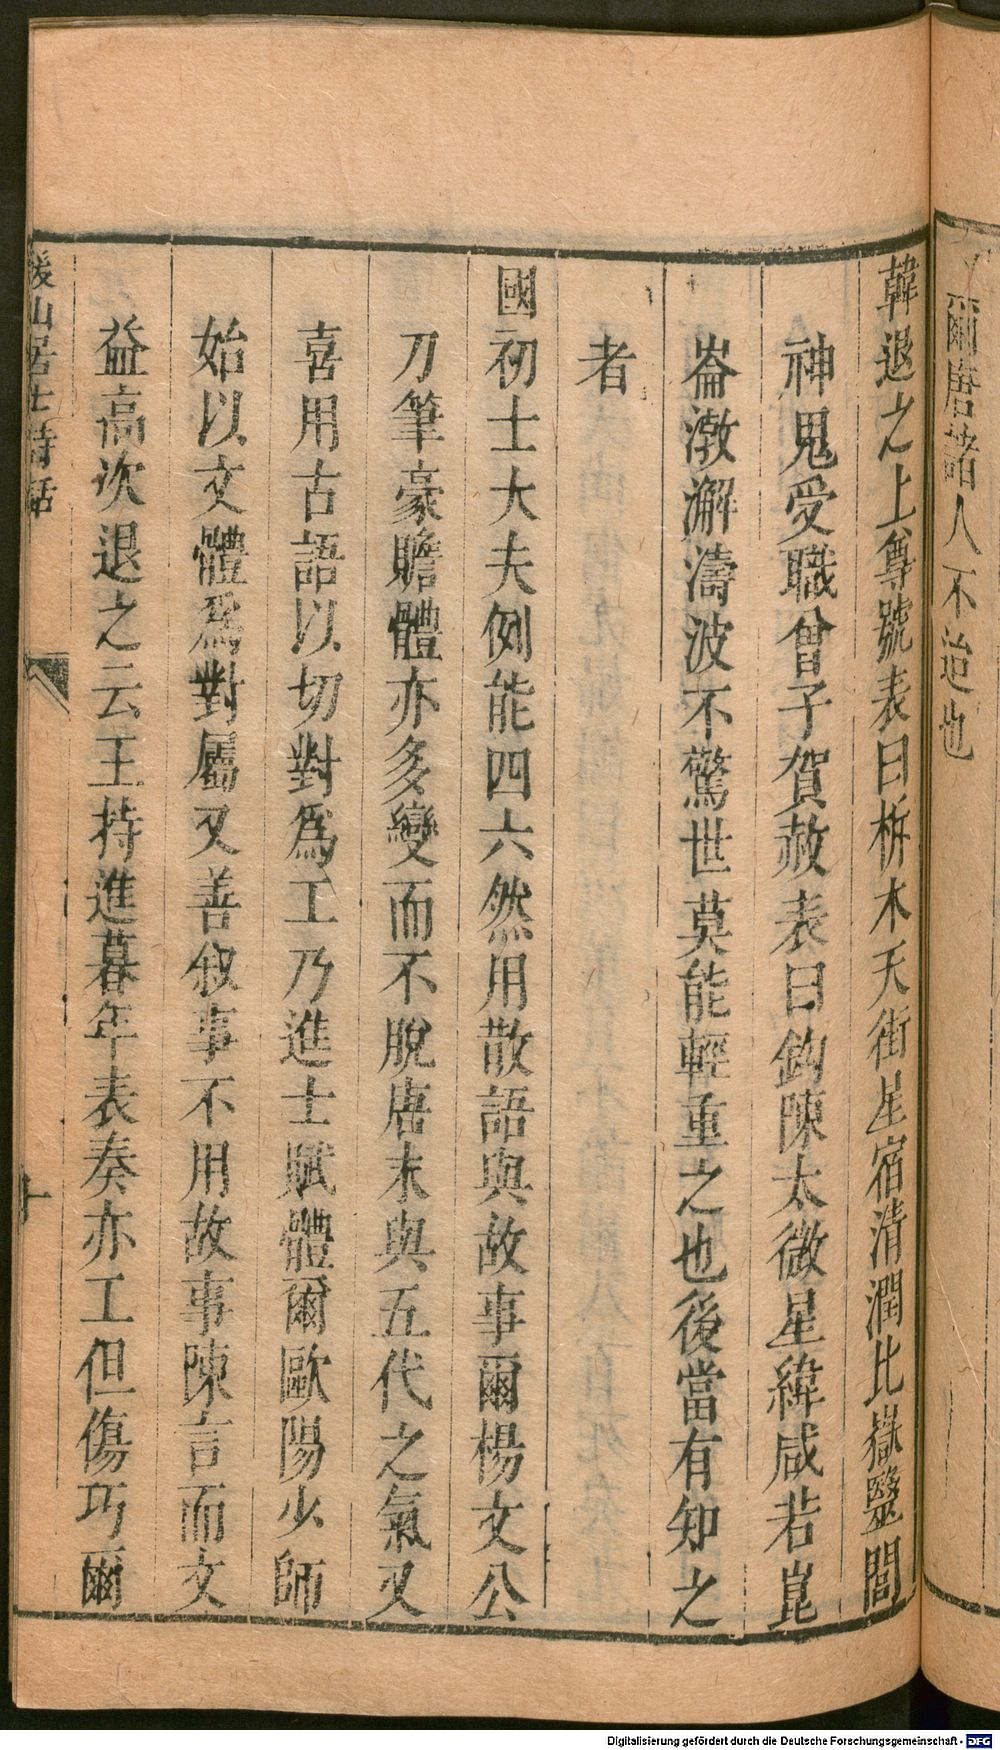 爾唐諸人不迨也
韓退之上尊號表曰析木天街星宿清潤北嶽醫閭
神鬼受職曾子賀赦表曰鈎陳太微星緯咸若崑
崙渤澥濤波不驚世莫能輕重之也後當有知之
者
國初士大夫例能四六然用散語與故事爾楊文公
刀筆豪贍體亦多變而不脫唐末與五代之氣又
喜用古語以切對爲工乃進士賦體爾歐陽少師
始以文體爲對屬又善叙事不用故事陳言而文
益高次退之云王持進暮年表奏亦工但傷巧爾
後山居士詩話
十
Digitalisierung gefördert durch die Deutsche Forschungsgemeinschaft - DFG